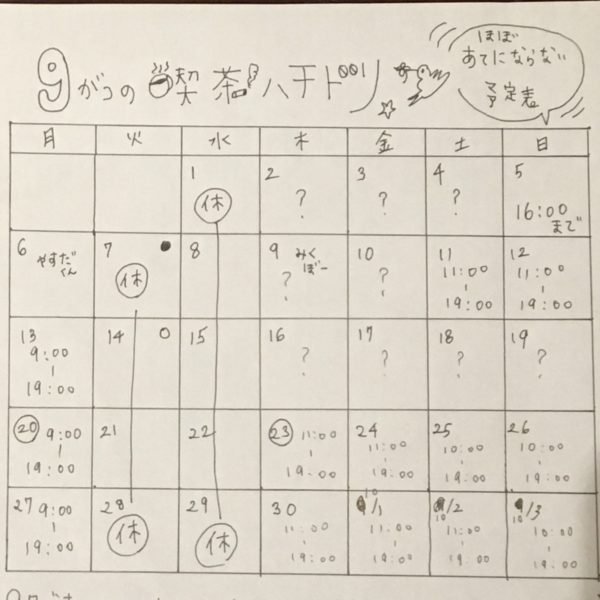 9がつの喫茶ハチドリ
ほぼ
あてにならない
予定表
月 火 水 木 金 土 日
1 2 3 4 5
休 ? ? ? 16:00
まで
6 7 8 9 10 11 12
やすだ
くん
休
みく
ぼー
? ?
11:00 11:00
19:00 19:00
13 14 15 16 17 18 19
9:00
19:00
? ? ? ?
20 21 22 23 24 25 26
9:00 11:00 11:00 10:00 10:00
19:00 19:00 19:00 19:00 19:00
27 28 29 30 10/1 10/2 10/3
9:00 11:00 11:00 11:00 10:00
19:00 19:00 19:00 19:00 19:00
休 休